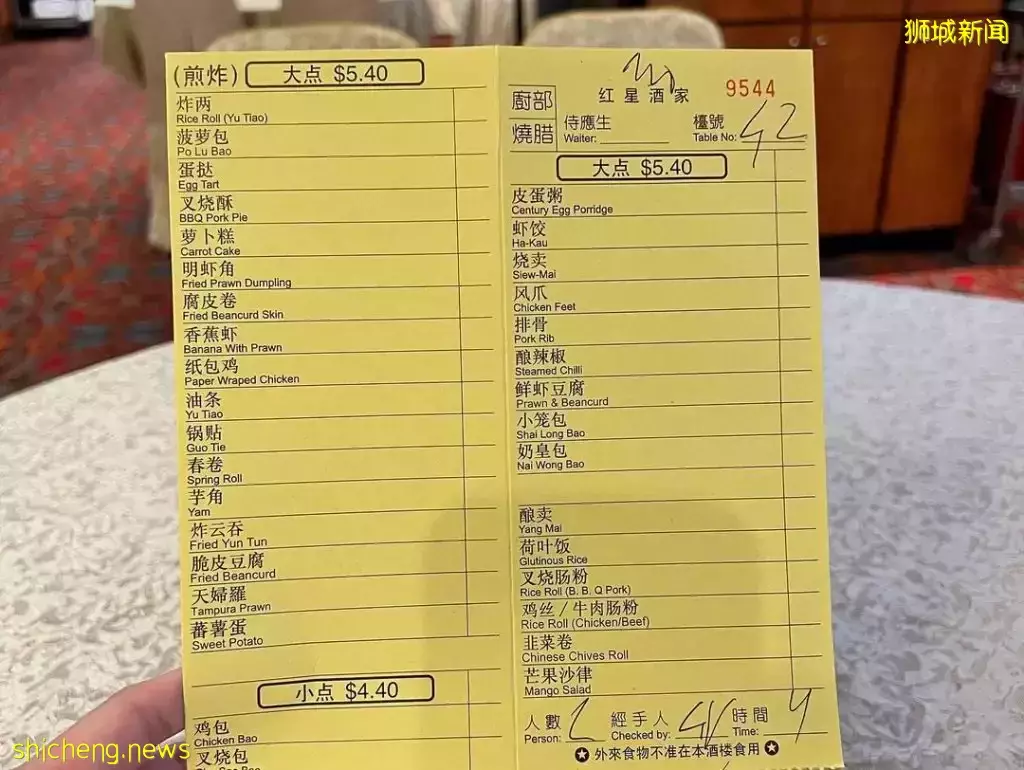 狮城新闻
(煎炸) 大点 $5.40
炸两
Rice Roll (Yu Tiao)
菠萝包
Po Lu Bao
蛋挞
Egg Tart
叉烧酥
BBQ Pork Pie
萝卜糕
Carrot Cake
明虾角
Fried Prawn Dumpling
腐皮卷
Fried Beancurd Skin
香蕉虾
Banana With Prawn
纸包鸡
Paper Wraped Chicken
油条
Yu Tiao
锅贴
Guo Tie
春卷
Spring Roll
芋角
Yam
炸云吞
Fried Yun Tun
脆皮豆腐
Fried Beancurd
天婦羅
Tampura Prawn
蕃薯蛋
Sweet Potato
小点 $4.40
鸡包
Chicken Bao
叉烧包
厨部
燒腊
红星酒家
9544
侍應生
Waiter:
檯號
Table No: 42
大点 $5.40
皮蛋粥
Century Egg Porridge
虾饺
Ha-Kau
烧卖
Siew-Mai
凤爪
Chicken Feet
排骨
Pork Rib
酿辣椒
Steamed Chilli
鲜虾豆腐
Prawn & Beancurd
小笼包
Shai Long Bao
奶皇包
Nai Wong Bao
酿卖
Yang Mai
荷叶饭
Glutinous Rice
叉烧肠粉
Rice Roll (B. B. Q Pork)
鸡丝 / 牛肉肠粉
Rice Roll (Chicken/Beef)
韭菜卷
Chinese Chives Roll
芒果沙律
Mango Salad
人數
Person:
經手人
Checked by:
時間
Time:
外來食物不准在本酒楼食用
shicheng.news